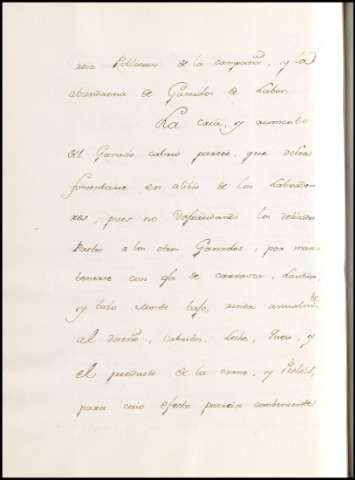 de la campaña, y la
abundancia de Ganados de Labor.
La cria, y aumento
del Ganado cabrio parece, que debia
fomentarse en alibio de los Labrado-
res, pues no los
Pastos a los otros Ganados, por man-
tenerse con oja de carrasca,
y todo monte bajo, anualmte
al dueño, cabritos, Leche, Queso, y
el producto de la carne, y Pieles,
para cuio efecto parecia combeniente